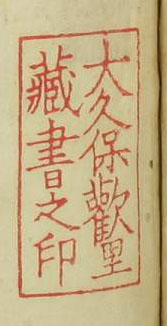 大久保歡里
藏書之印